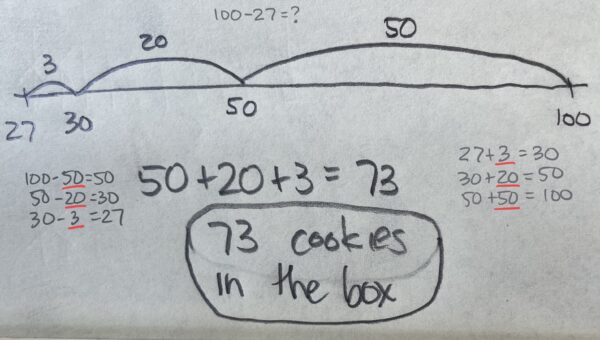 100-27=?
3
20
50
27
30
50
100
100-50=50
50-20=30
30-3=27
50+20+3=73
27+3=30
30+20=50
50+50=100
73 cookies
in the box